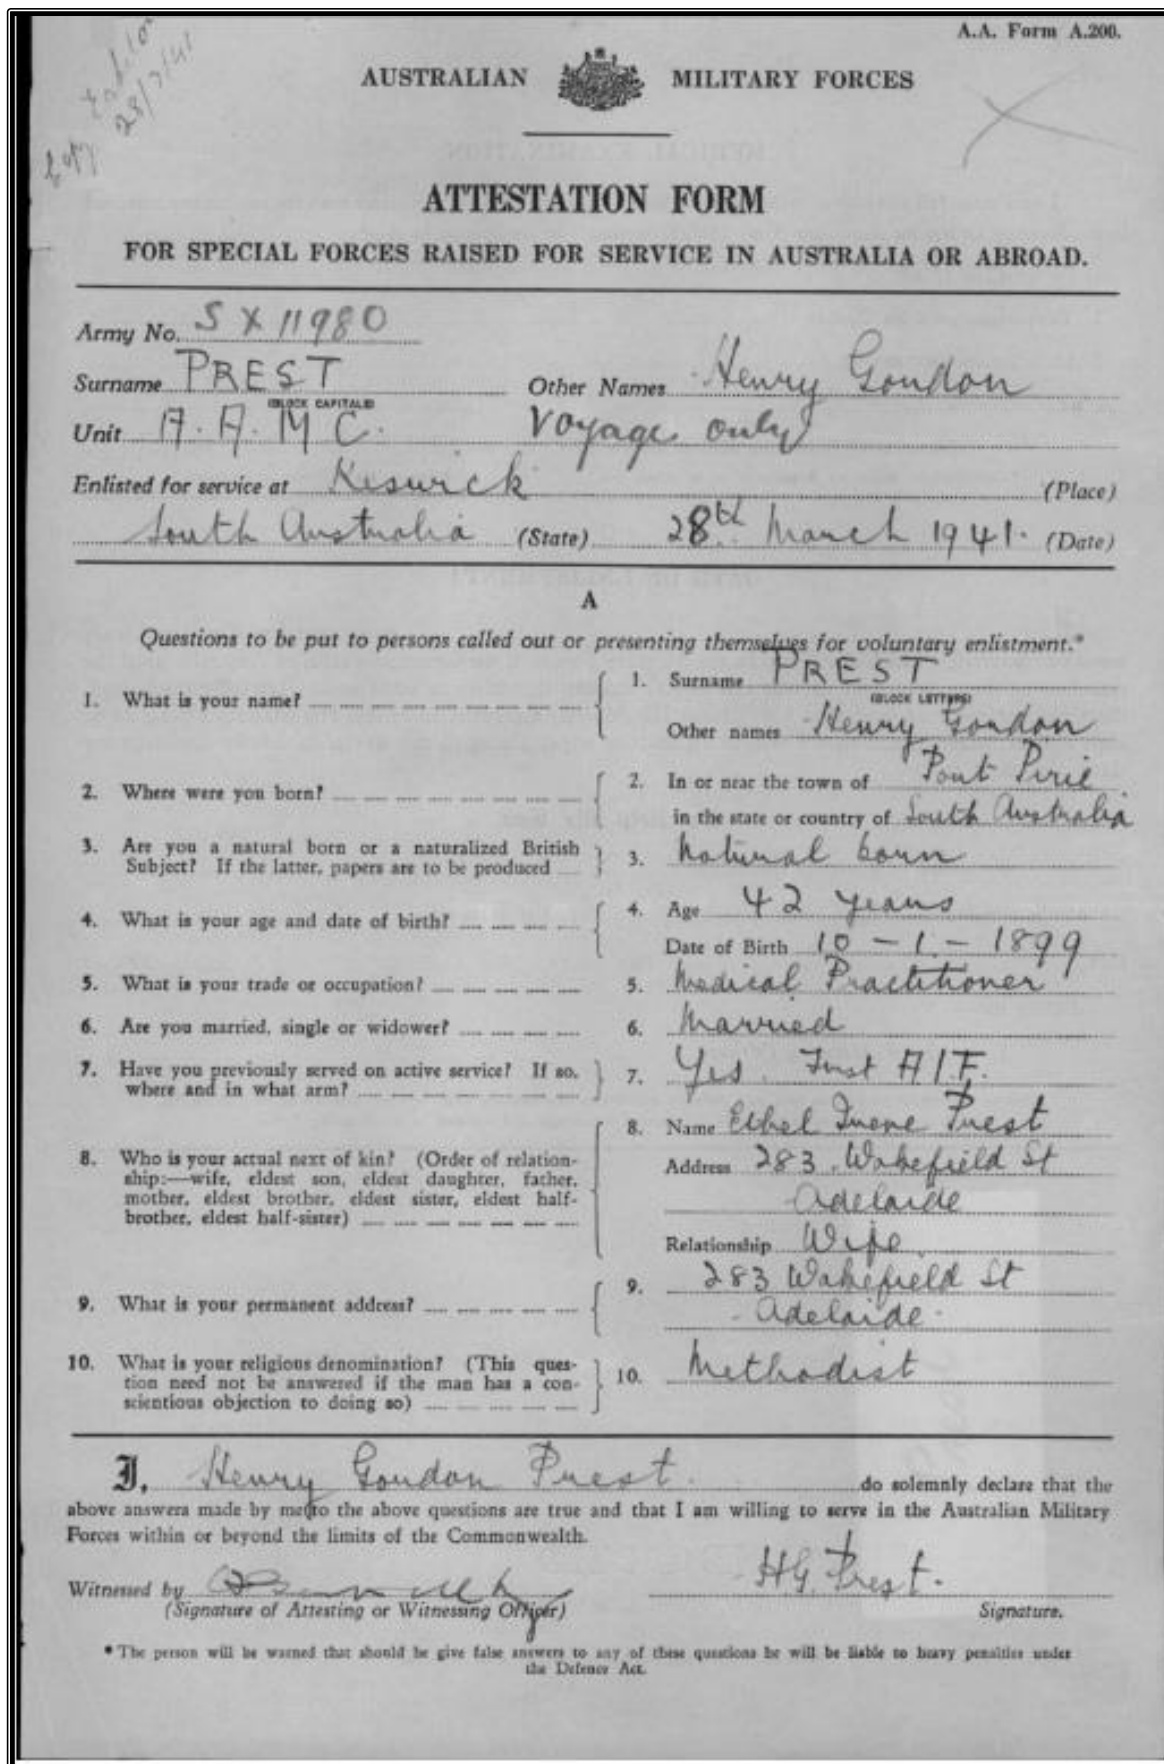 A.A. Form A.200.
28/7/41
AUSTRALIAN MILITARY FORCES
ATTESTATION FORM
FOR SPECIAL FORCES RAISED FOR SERVICE IN AUSTRALIA OR ABROAD.
Army No. SX11980
Surname PREST Other Names Henry Gordon
(BLOCK CAPITALS)
Unit A.A.M.C. Voyage only
Enlisted for service at Keswick (Place)
South Australia (State) 28th March 1941. (Date)
A
Questions to be put to persons called out or presenting themselves for voluntary enlistment.*
1. What is your name? 1. Surname PREST
(BLOCK LETTERS)
Other names Henry Gordon
2. Where were you born? 2. In or near the town of Port Pirie
in the state or country of South Australia
3. Are you a natural born or a naturalized British
Subject? If the latter, papers are to be produced 3. Natural born
4. What is your age and date of birth? 4. Age 42 years
Date of Birth 10 - 1 - 1899
5. What is your trade or occupation? 5. Medical Practitioner
6. Are you married, single or widower? 6. Married
7. Have you previously served on active service? If so,
where and in what arm? 7. Yes. First A.I.F.
8. Who is your actual next of kin? (Order of relation-
ship:—wife, eldest son, eldest daughter, father,
mother, eldest brother, eldest sister, eldest half-
brother, eldest half-sister)
8. Name Ethel Irene Prest
Address 283 Wakefield St
Adelaide
Relationship Wife
9. What is your permanent address? 9. 283 Wakefield St
Adelaide
10. What is your religious denomination? (This ques-
tion need not be answered if the man has a con-
scientious objection to doing so) 10. Methodist
I, Henry Gordon Prest do solemnly declare that the
above answers made by me to the above questions are true and that I am willing to serve in the Australian Military
Forces within or beyond the limits of the Commonwealth.
Witnessed by HG Prest.
(Signature of Attesting or Witnessing Officer) Signature.
*The person will be warned that should he give false answers to any of these questions he will be liable to heavy penalties under
the Defence Act.